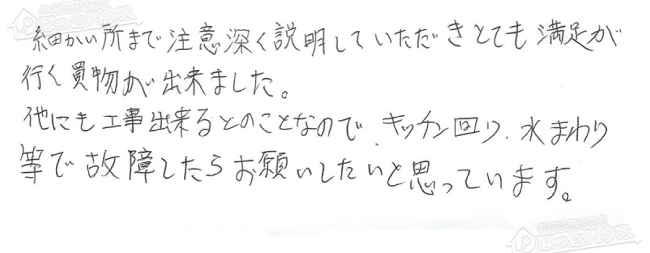 細かい所まで注意深く説明していただきとても満足が
行く買物が出来ました。
他にも工事出来るとのことなので、キッチン回り、水まわり
等で故障したらお願いしたいと思っています。